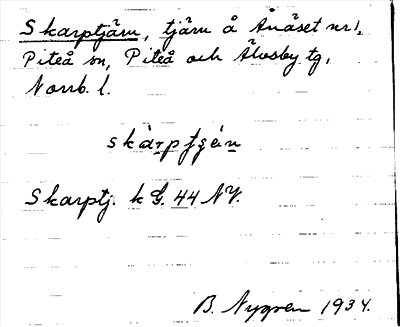 Skarptjärn, tjärn å Ånäset nr 1,
Piteå sn, Piteå och Älvsby tg,
Norrb. l.
skarptjärn
Skarptj. k G. 44 NV.
B. Nygren 1934.